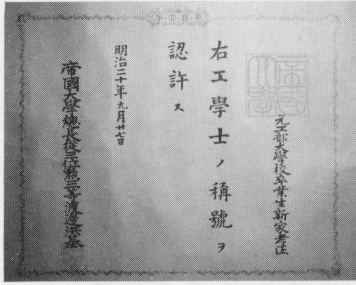 元工部大學校卒業生新家孝正
右工學士ノ稱號ヲ
認許ス
明治二十年九月廿七日
帝國大學總長從三位勲三等渡邊洪基